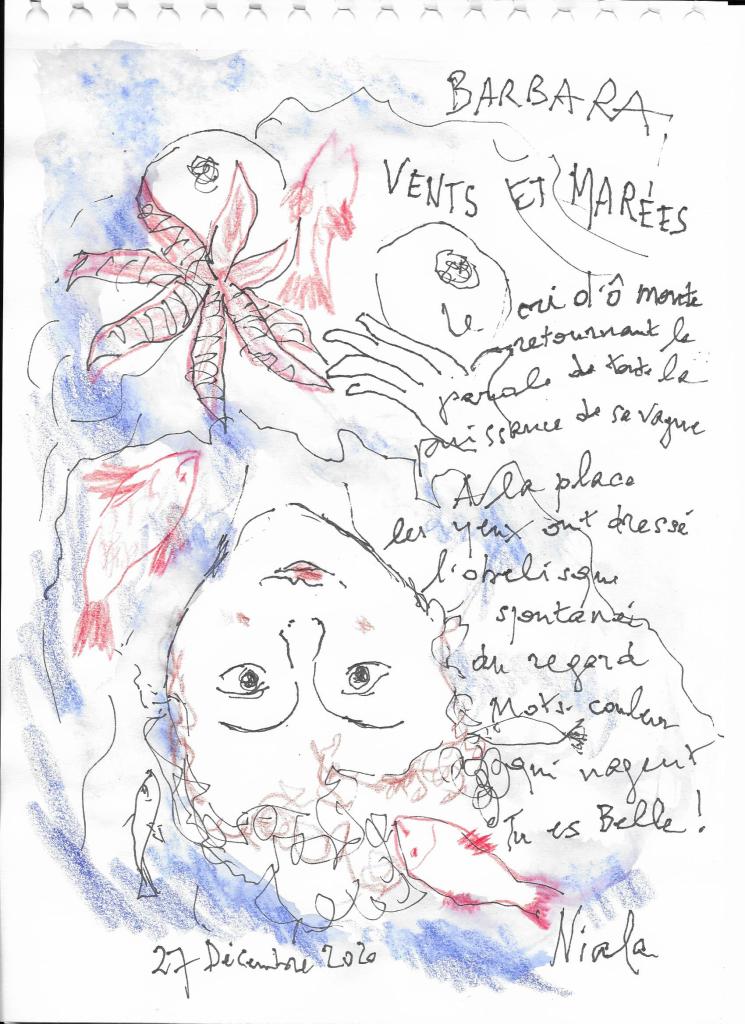 BARBARA,
VENTS ET MARÉES
Le cri d'ô monte
retournant la
parole de toute la
puissance de sa vague
A la place
les yeux ont dressé
l'obélisque
spontané
du regard
Mots-couleur
qui nagent
Tu es Belle !
Niala
27 Décembre 2020